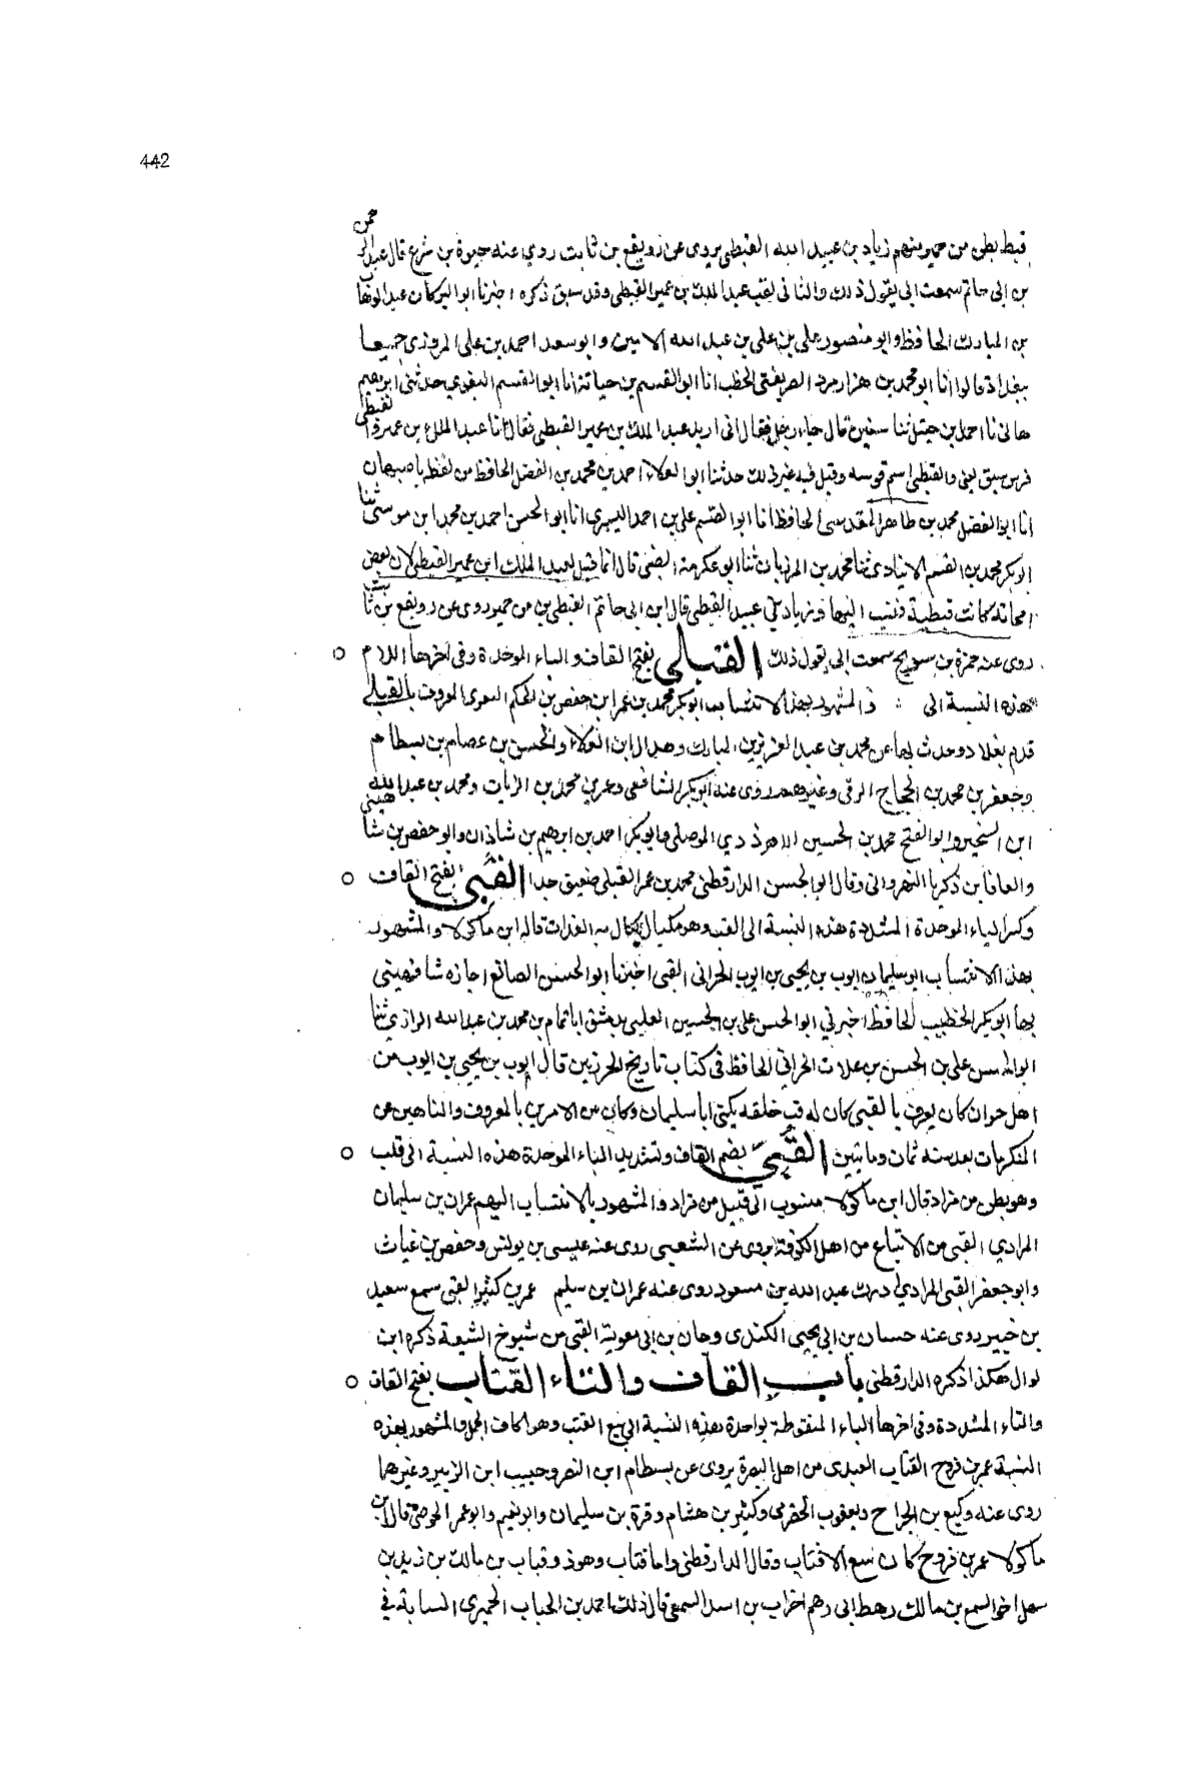 442
قبط بطن من حمير منهم زياد بن عبيد الله القبطي يروى عن رويفع بن ثابت روي عنه حيوة بن شريح قال عبد الرحمن
بن ابى حاتم سمعت ابى يقول ذلك والثانى لقب عبد الملك بن عمير القبطى وقد سبق ذكره اخبرنا ابو البركات عبد الوهاب
بن المبارك الحافظ وابو منصور على بن على بن عبد الله الامين وابو سعد احمد بن على المروزى جميعا
ببغداذ قالوا انا ابو محمد بن هزارمرد الصريفنى الخطيب انا ابو القسم بن حبابة انا ابو القسم البغوي حدثنى ابرهيم
هانى نا احمد بن حنبل ثنا سفين قال جاء رجل فقال انى اريد عبد الملك بن عمير القبطى فقال انا عبد الملك بن عمير والقبطى
فرس سبق يعنى والقبطى اسم فرسه وقيل فيه غير ذلك حدثنا ابو العلاء احمد بن محمد بن الفضل الحافظ من لفظه باصبهان
انا ابو الفضل محمد بن طاهر المقدسى الحافظ انا ابو القسم على بن احمد البسري انا ابو الحسن احمد بن محمد ابن موسى ثنا
ابو بكر محمد بن القسم الانبادى ثنا محمد بن المرزبان ثنا ابو عكرمة الضبى قال انما قيل لعبد الملك ابن عمير القبطى لان بعض
امهاته كانت قبطية فنسب اليها وزياد بن عبيد القبطى قال ابن ابى حاتم القبطى بن من حمير روى عن رويفع بن ثابت
روى عنه حمزة بن سريح سمعت ابى يقول ذلك القبلي بفتح القاف والباء الموحدة وفى اخرها اللام ○
هذه النسبة الى والمشهور بهذا الانتساب ابو بكر محمد بن عمر ابن حفص بن الحكم المعروف بالقبلي
قدم بغداد وحدث بها عن محمد بن عبد العزيز بن المبارك وهلال ابن العلاء والحسن بن عصام بن بسطام
وجعفر بن محمد بن الحجاج الرقى وغيرهم روى عنه ابو بكر الشافعى وعمر بن محمد بن الزيات ومحمد بن عبد الله
ابن الشخير وابو الفتح محمد بن الحسين الازدي الموصلى وابو بكر احمد بن ابرهيم بن شاذان وابو حفص بن شاهين
والعافا بن زكريا النهروانى وقال ابو الحسن الدارقطنى محمد بن عمر القبلى ضعيف جدا القبي بفتح القاف ○
وكسر الباء الموحدة المشددة هذه النسبة الى القب وهو مكيال يكال به الغلات قاله ابن ماكولا والمشهور
بهذا الانتساب ابو سليمان ايوب بن يحيى بن ايوب الحرانى القبى اخبرنا ابو الحسن الصائغ اجازه شافهنى
بها ابو بكر الخطيب الحافظ اخبرني ابو الحسن على بن الحسين العلبى بدمشق انا تمام بن محمد بن عبد الله الرازي ثنا
ابو الحسن على بن الحسن بن علان الحرانى الحافظ فى كتاب تاريخ الجزريين قال ايوب بن يحيى بن ايوب من
اهل حران كان يعرف بالقبى كان له قب خلقه يكنى ابا سليمان وكان من الامرين بالمعروف والناهين عن
المنكر مات بعد سنه ثمان ومائتين القُبّي بضم القاف وتشديد الباء الموحدة هذه النسبة الى قب ○
وهو بطن من مراد قال ابن ماكولا منسوب الى قبيل من مراد والمشهور بالانتساب اليهم عمران بن سليمان
المرادي القبى من الاتباع من اهل الكوفة يروى عن الشعبى روى عنه عيسى بن يونس وحفص بن غياث
وابو جعفر القبى المرادي ادرك عبد الله بن مسعود روى عنه عمران بن سليم عمر بن كثير القبى سمع سعيد
بن جبير روى عنه حسان بن ابى يحيى الكندى وحان بن ابى معوية القبى من شيوخ الشيعة ذكره ابن
هكذا ذكره الدارقطنى باب القاف والتاء القتّاب بفتح القاف ○
والتاء المشددة وفى اخرها الباء المنقوطة بواحدة هذه النسبة الى بيع القتب وهو اكاف الجمل والمشهور بهذه
النسبة عمر بن فروخ القتاب العبدى من اهل البصرة يروى عن بسطام ابن النضر وحبيب ابن الزبير وغيرهما
روى عنه وكيع بن الجراح ويعقوب الحضرمى وكثير بن هشام وقرة بن سليمان وابو نعيم وابو عمر الحوضى قال ابن
ماكولا عمر بن فروخ كان يبيع الاقتاب وقال الدارقطنى واما قتاب وهوذو قتاب بن مالك بن زيد بن
سهل اخو السمع بن مالك رهط ابى رهم احزاب بن اسد السمعى قال ذلك احمد بن الحباب الحميرى النسابة فى